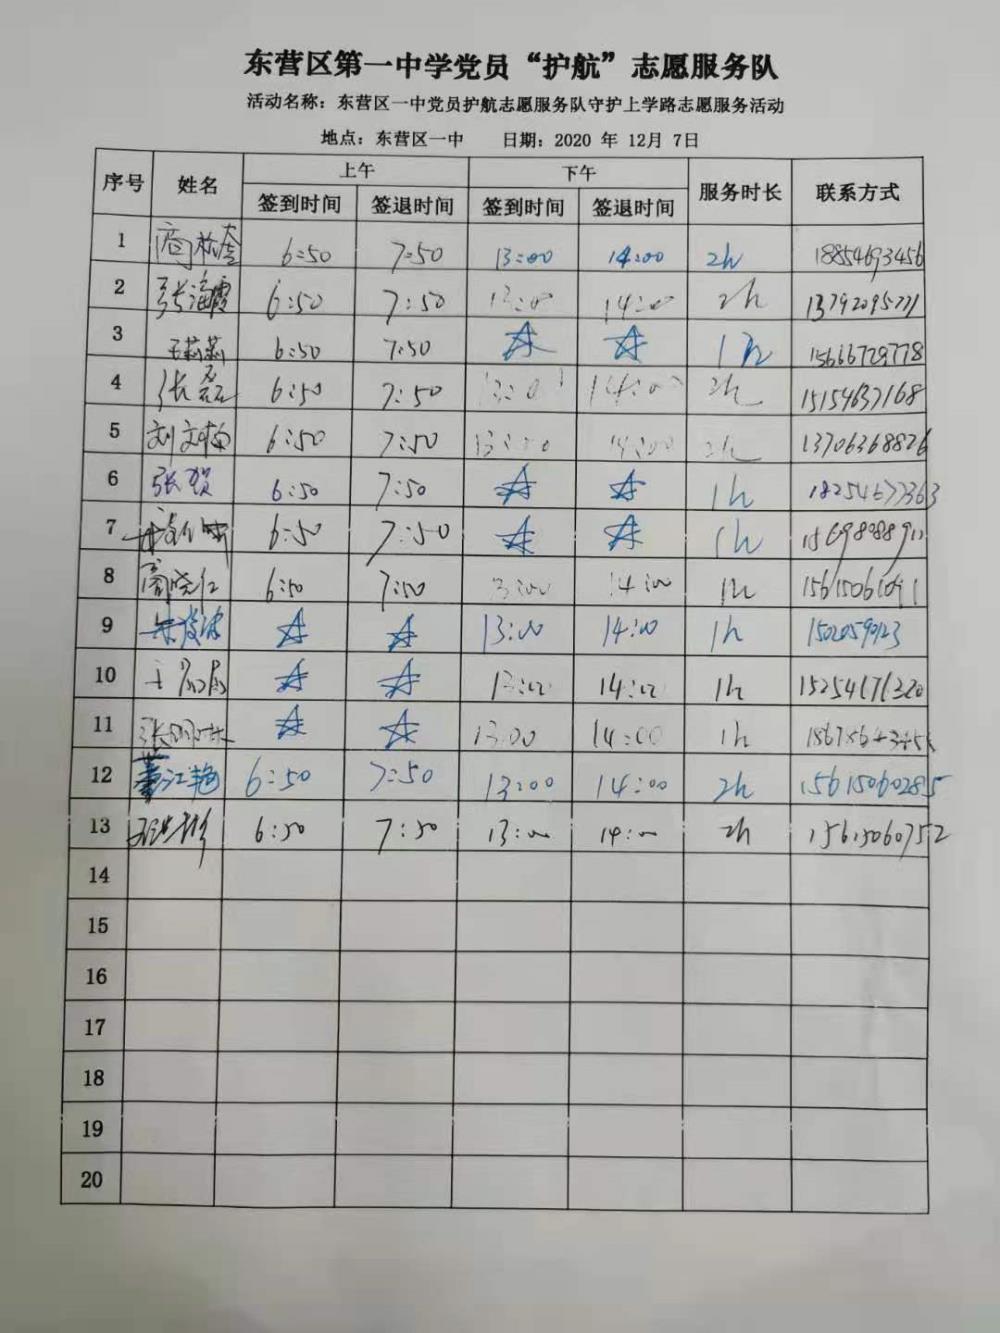 东营区第一中学党员“护航”志愿服务队
活动名称：东营区一中党员护航志愿服务队守护上学路志愿服务活动
地点：东营区一中 日期：2020 年 12月 7日
序号 姓名 上午 下午 服务时长 联系方式
签到时间 签退时间 签到时间 签退时间
1 6:50 7:50 13:00 14:00 2h 18854693456
2 张海霞 6:50 7:50 13:00 14:00 2h 13792095771
3 王莉莉 6:50 7:50 ☆ ☆ 1h 15666729778
4 张磊 6:50 7:50 13:00 14:00 2h 15154637168
5 刘文梅 6:50 7:50 13:00 14:00 2h 13706368826
6 张贺 6:50 7:50 ☆ ☆ 1h 18254677363
7 6:50 7:50 ☆ ☆ 1h
8 商晓仁 6:50 7:50 13:00 14:00 1h 15615061091
9 ☆ ☆ 13:00 14:00 1h
10 ☆ ☆ 13:00 14:00 1h 15254671320
11 ☆ ☆ 13:00 14:00 1h
12 董江艳 6:50 7:50 13:00 14:00 2h 15615060285
13 6:50 7:50 13:00 14:00 2h 15615060752
14
15
16
17
18
19
20